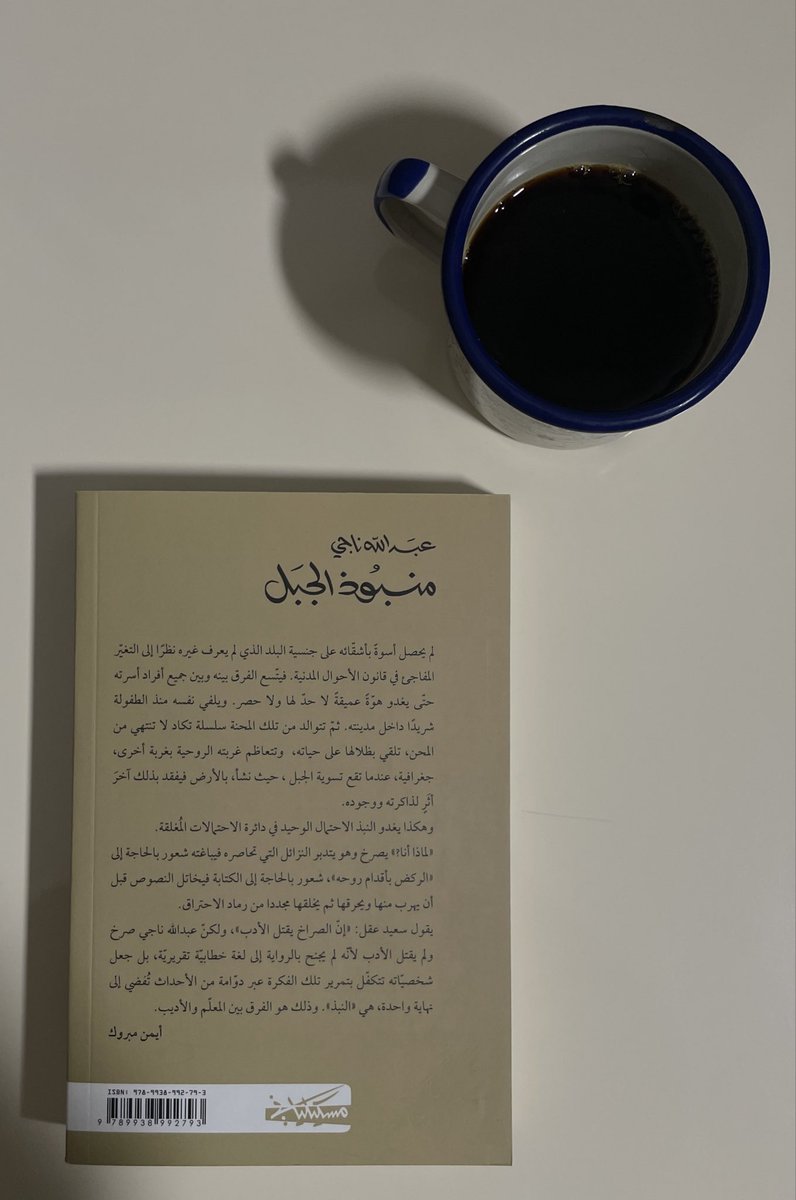 عبدالله ناجي
منبوذ الجبل
لم يحصل أسوةً بأشقّائه على جنسية البلد الذي لم يعرف غيره نظرًا إلى التغيّر
المفاجئ في قانون الأحوال المدنية. فيتّسع الفرق بينه وبين جميع أفراد أسرته
حتّى يغدو هوّةً عميقةً لا حدّ لها ولا حصر. ويلفي نفسه منذ الطفولة
شريدًا داخل مدينته. ثمّ تتوالد من تلك المحنة سلسلة تكاد لا تنتهي من
المحن، تلقي بظلالها على حياته، وتتعاظم غربته الروحية بغربة أخرى،
جغرافية، عندما تقع تسوية الجبل، حيث نشأ، بالأرض فيفقد بذلك آخرَ
أثَرٍ لذاكرته ووجوده.
وهكذا يغدو النبذ الاحتمال الوحيد في دائرة الاحتمالات المُغلقة.
«لماذا أنا؟» يصرخ وهو يتدبر النزائل التي تحاصره فيباغته شعور بالحاجة إلى
«الركض بأقدام روحه»، شعور بالحاجة إلى الكتابة فيخاتل النصوص قبل
أن يهرب منها ويحرقها ثم يخلقها مجددا من رماد الاحتراق.
يقول سعيد عقل: «إنّ الصراخ يقتل الأدب»، ولكنّ عبدالله ناجي صرخ
ولم يقتل الأدب لأنّه لم يجنح بالرواية إلى لغة خطابيّة تقريريّة، بل جعل
شخصيّاته تتكفّل بتمرير تلك الفكرة عبر دوّامة من الأحداث تُفضي إلى
نهاية واحدة، هي «النبذ». وذلك هو الفرق بين المعلّم والأديب.
أيمن مبروك
ISBN: 978-9938-992-79-3
9 789938 992793
مسكيلياني